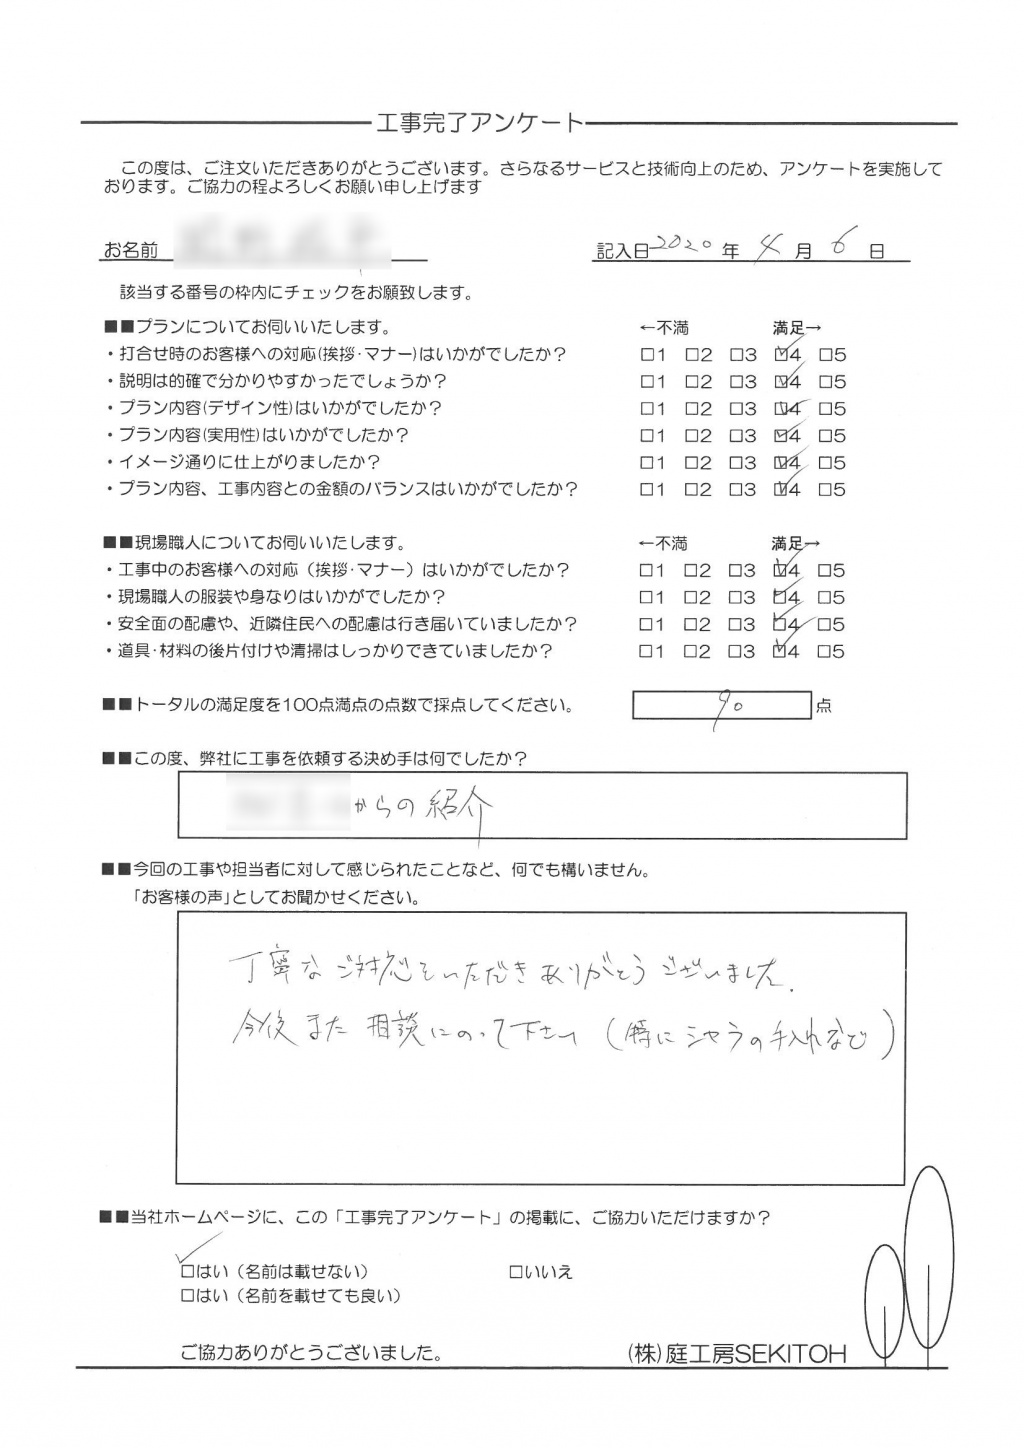 工事完了アンケート
この度は、ご注文いただきありがとうございます。さらなるサービスと技術向上のため、アンケートを実施して
おります。ご協力の程よろしくお願い申し上げます
お名前 記入日2020年 4月 6日
該当する番号の枠内にチェックをお願致します。
■■プランについてお伺いいたします。 ←不満 満足→
・打合せ時のお客様への対応(挨拶・マナー)はいかがでしたか? □1 □2 □3 ☑4 □5
・説明は的確で分かりやすかったでしょうか? □1 □2 □3 ☑4 □5
・プラン内容(デザイン性)はいかがでしたか? □1 □2 □3 ☑4 □5
・プラン内容(実用性)はいかがでしたか? □1 □2 □3 ☑4 □5
・イメージ通りに仕上がりましたか? □1 □2 □3 ☑4 □5
・プラン内容、工事内容との金額のバランスはいかがでしたか? □1 □2 □3 ☑4 □5
■■現場職人についてお伺いいたします。 ←不満 満足→
・工事中のお客様への対応(挨拶・マナー)はいかがでしたか? □1 □2 □3 ☑4 □5
・現場職人の服装や身なりはいかがでしたか? □1 □2 □3 ☑4 □5
・安全面の配慮や、近隣住民への配慮は行き届いていましたか? □1 □2 □3 ☑4 □5
・道具・材料の後片付けや清掃はしっかりできていましたか? □1 □2 □3 ☑4 □5
■■トータルの満足度を100点満点の点数で採点してください。 90 点
■■この度、弊社に工事を依頼する決め手は何でしたか?
からの紹介
■■今回の工事や担当者に対して感じられたことなど、何でも構いません。
「お客様の声」としてお聞かせください。
丁寧なご対応をいただきありがとうございました.
今後また相談にのって下さい(特にシャラの手入れなど)
■■当社ホームページに、この「工事完了アンケート」の掲載に、ご協力いただけますか?
☑はい(名前は載せない) □いいえ
□はい(名前を載せても良い)
ご協力ありがとうございました。 (株)庭工房SEKITOH